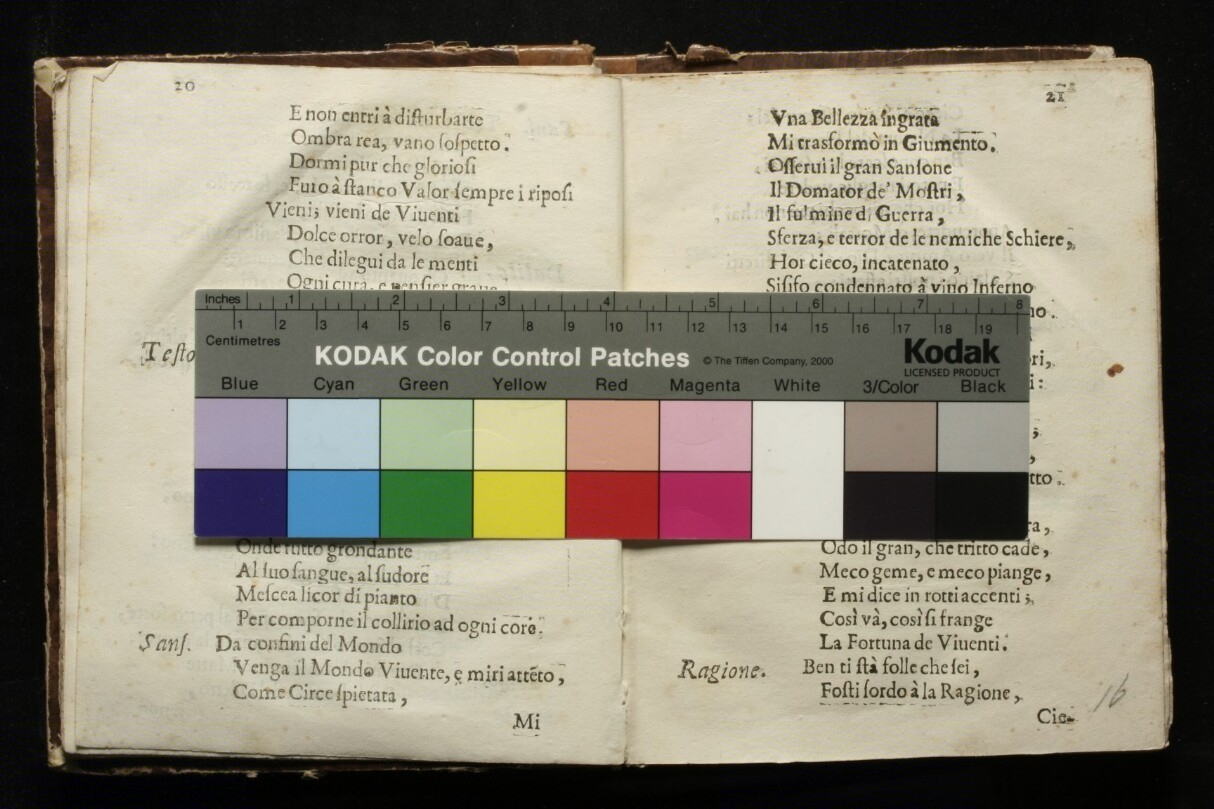 20
E non entri à disturbarte
Ombra rea, vano sospetto.
Dormi pur che gloriosi
Furo à stanco Valor sempre i riposi
Vieni; vieni de Viuenti
Dolce orror, velo soaue,
Che dilegui da le menti
Ogni cura, e pensier graue
Testo
Onde tutto grondante
Al suo sangue, al sudore
Mescea licor di pianto
Per comporne il collirio ad ogni core.
Sans. Da confini del Mondo
Venga il Mondo Viuente, e miri attẽto,
Come Circe spietata,
Mi
21
Vna Bellezza ingrata
Mi trasformò in Giumento.
Osserui il gran Sansone
Il Domator de' Mostri,
Il fulmine di Guerra,
Sferza, e terror de le nemiche Schiere,
Hor cieco, incatenato,
Sisifo condennato à viuo Inferno
no.
ri,
i:
;
,
tto.
ra,
Odo il gran, che trito cade,
Meco geme, e meco piange,
E mi dice in rotti accenti;
Così và, così si frange
La Fortuna de Viuenti.
Ragione. Ben ti stà folle che sei,
Fosti sordo à la Ragione,
Cie-
16
Inches 1 2 3 4 5 6 7 8
1 2 3 4 5 6 7 8 9 10 11 12 13 14 15 16 17 18 19
Centimetres
KODAK Color Control Patches © The Tiffen Company, 2000
Kodak
LICENSED PRODUCT
Blue Cyan Green Yellow Red Magenta White 3/Color Black